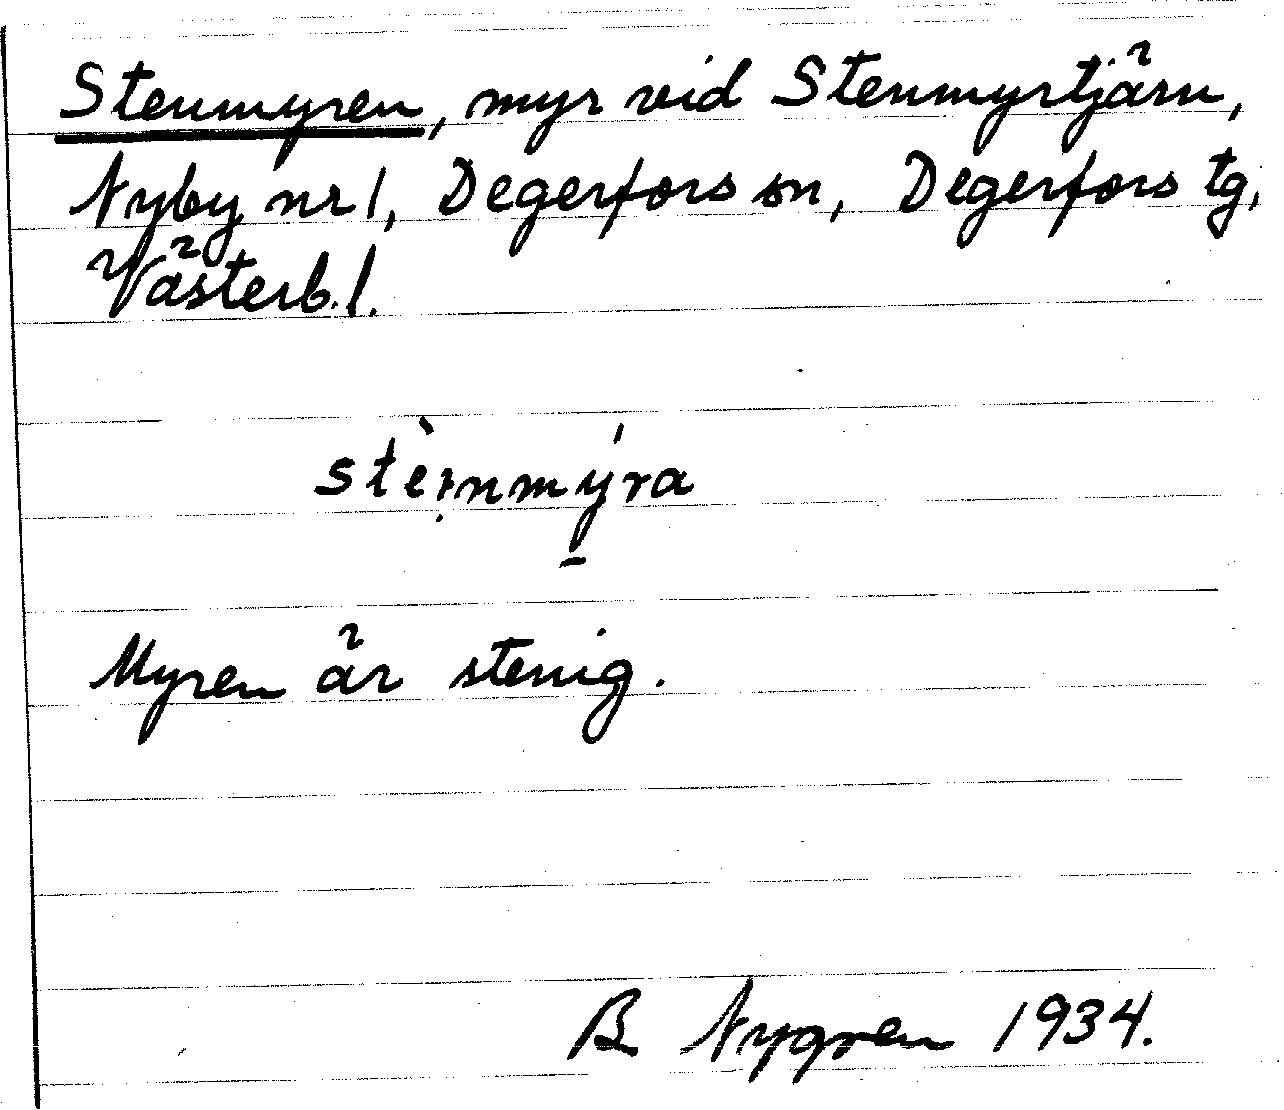 Stenmyren, myr vid Stenmyrtjärn,
Nyby nr 1, Degerfors sn, Degerfors tg,
Västerb. l.
stèi̩nmýra
Myren är stenig.
B Nygren 1934.